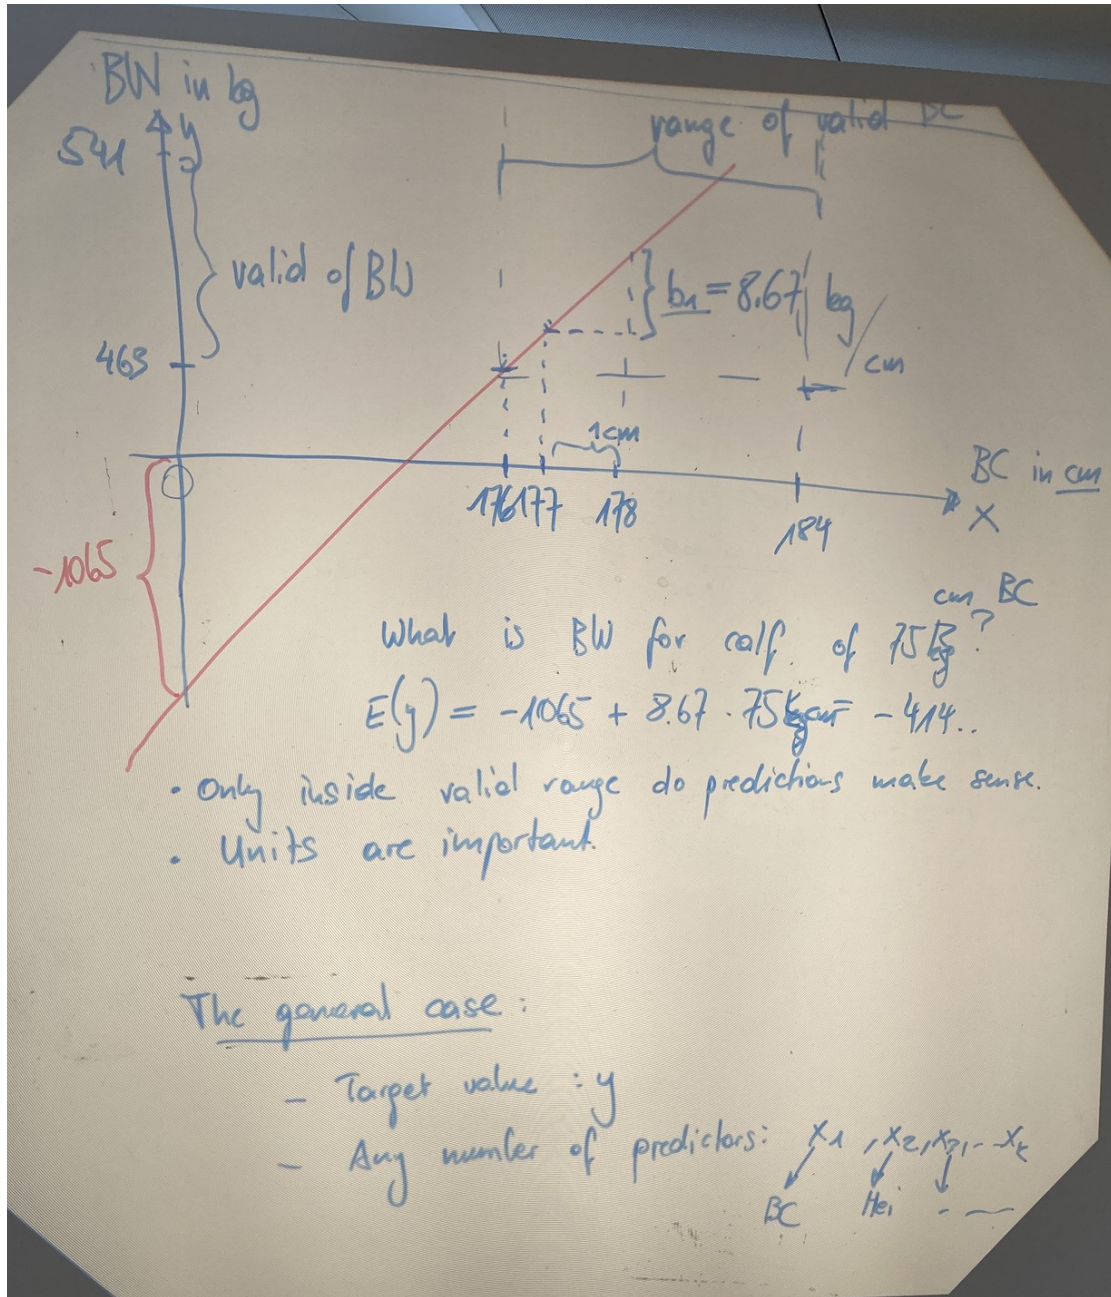 BW in kg
y
541
range of valid BC
valid of BW
b1 = 8.67 kg/cm
463
1cm
BC in cm
176 177 178
184
x
-1065
cm BC
What is BW for calf of 75 kg?
E(y) = -1065 + 8.67 · 75 cm = -414..
· Only inside valid range do predictions make sense.
· Units are important.
The general case:
- Target value : y
- Any number of predictors: x1, x2, x3, .. xk
BC Hei . —